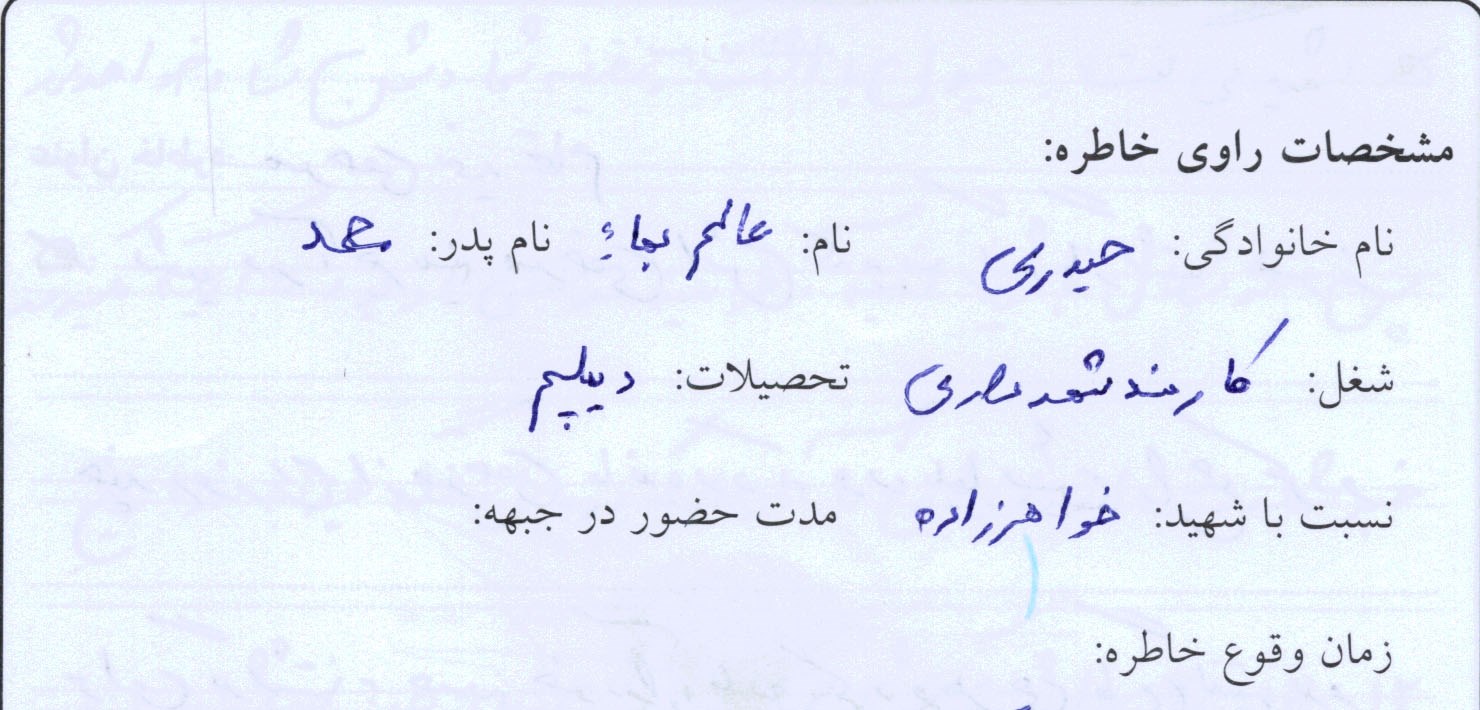 مشخصات راوی خاطره:
نام خانوادگی: حیدری نام: عالم نام پدر: محمد
شغل: کارمند شهرداری تحصیلات: دیپلم
نسبت با شهید: خواهرزاده مدت حضور در جبهه:
زمان وقوع خاطره: